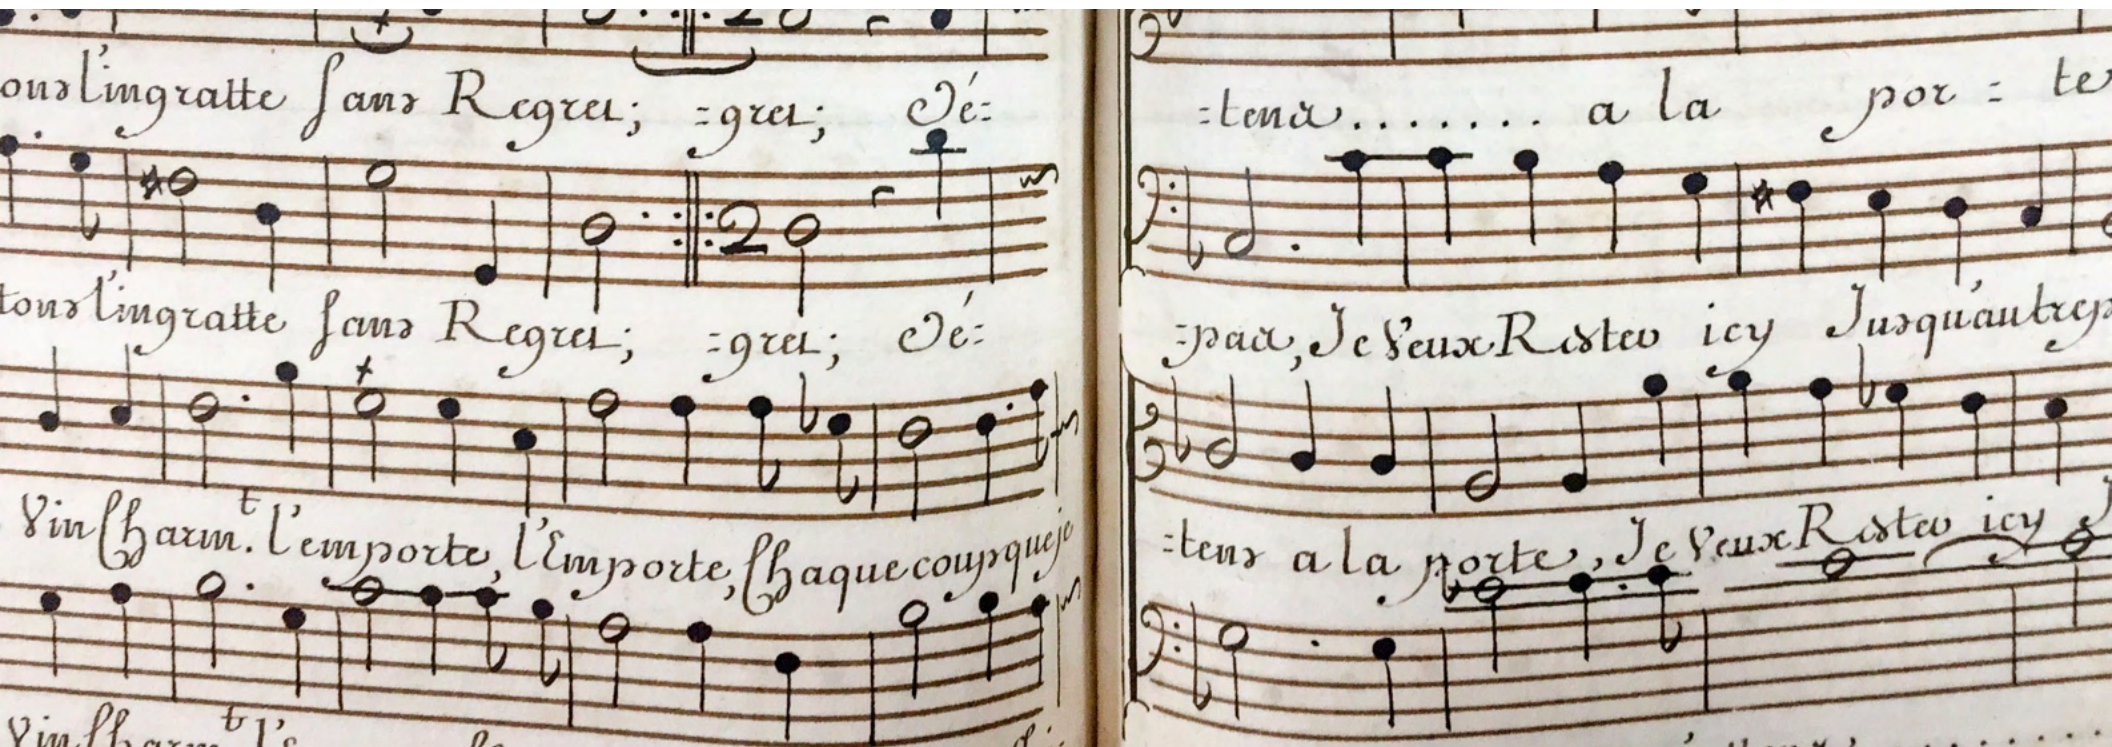 tous l'ingratte sans Regret; =gret; Vé=
tous l'ingratte sans Regret; =gret; Vé=
Vin Charm.t l'emporte, l'Emporte, Chaque coup que je
Vin Charm.t
=tens....... a la por = te
=pas, Je Veux Rester icy Jusqu'au trep
=tens a la porte, Je Veux Rester icy J